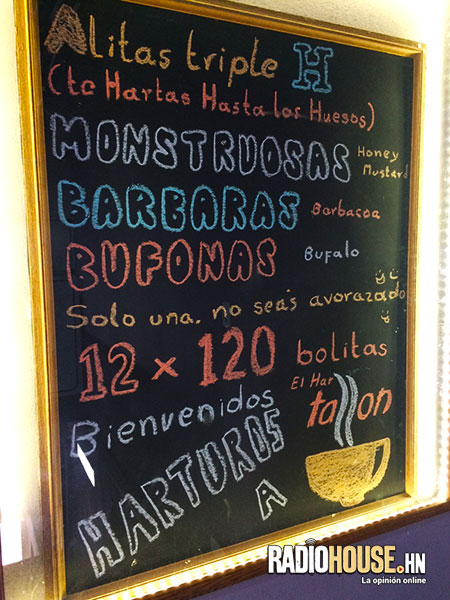 Alitas triple H
(te Hartas Hasta los Huesos)
MONSTRUOSAS Honey Mustard
BARBARAS Barbacoa
BUFONAS Bufalo
Solo una. no seas avorazado
12 x 120 bolitas
Bienvenidos
El Har
tazon
HARTUROS
A
RADIOHOUSE.HN
La opinión online